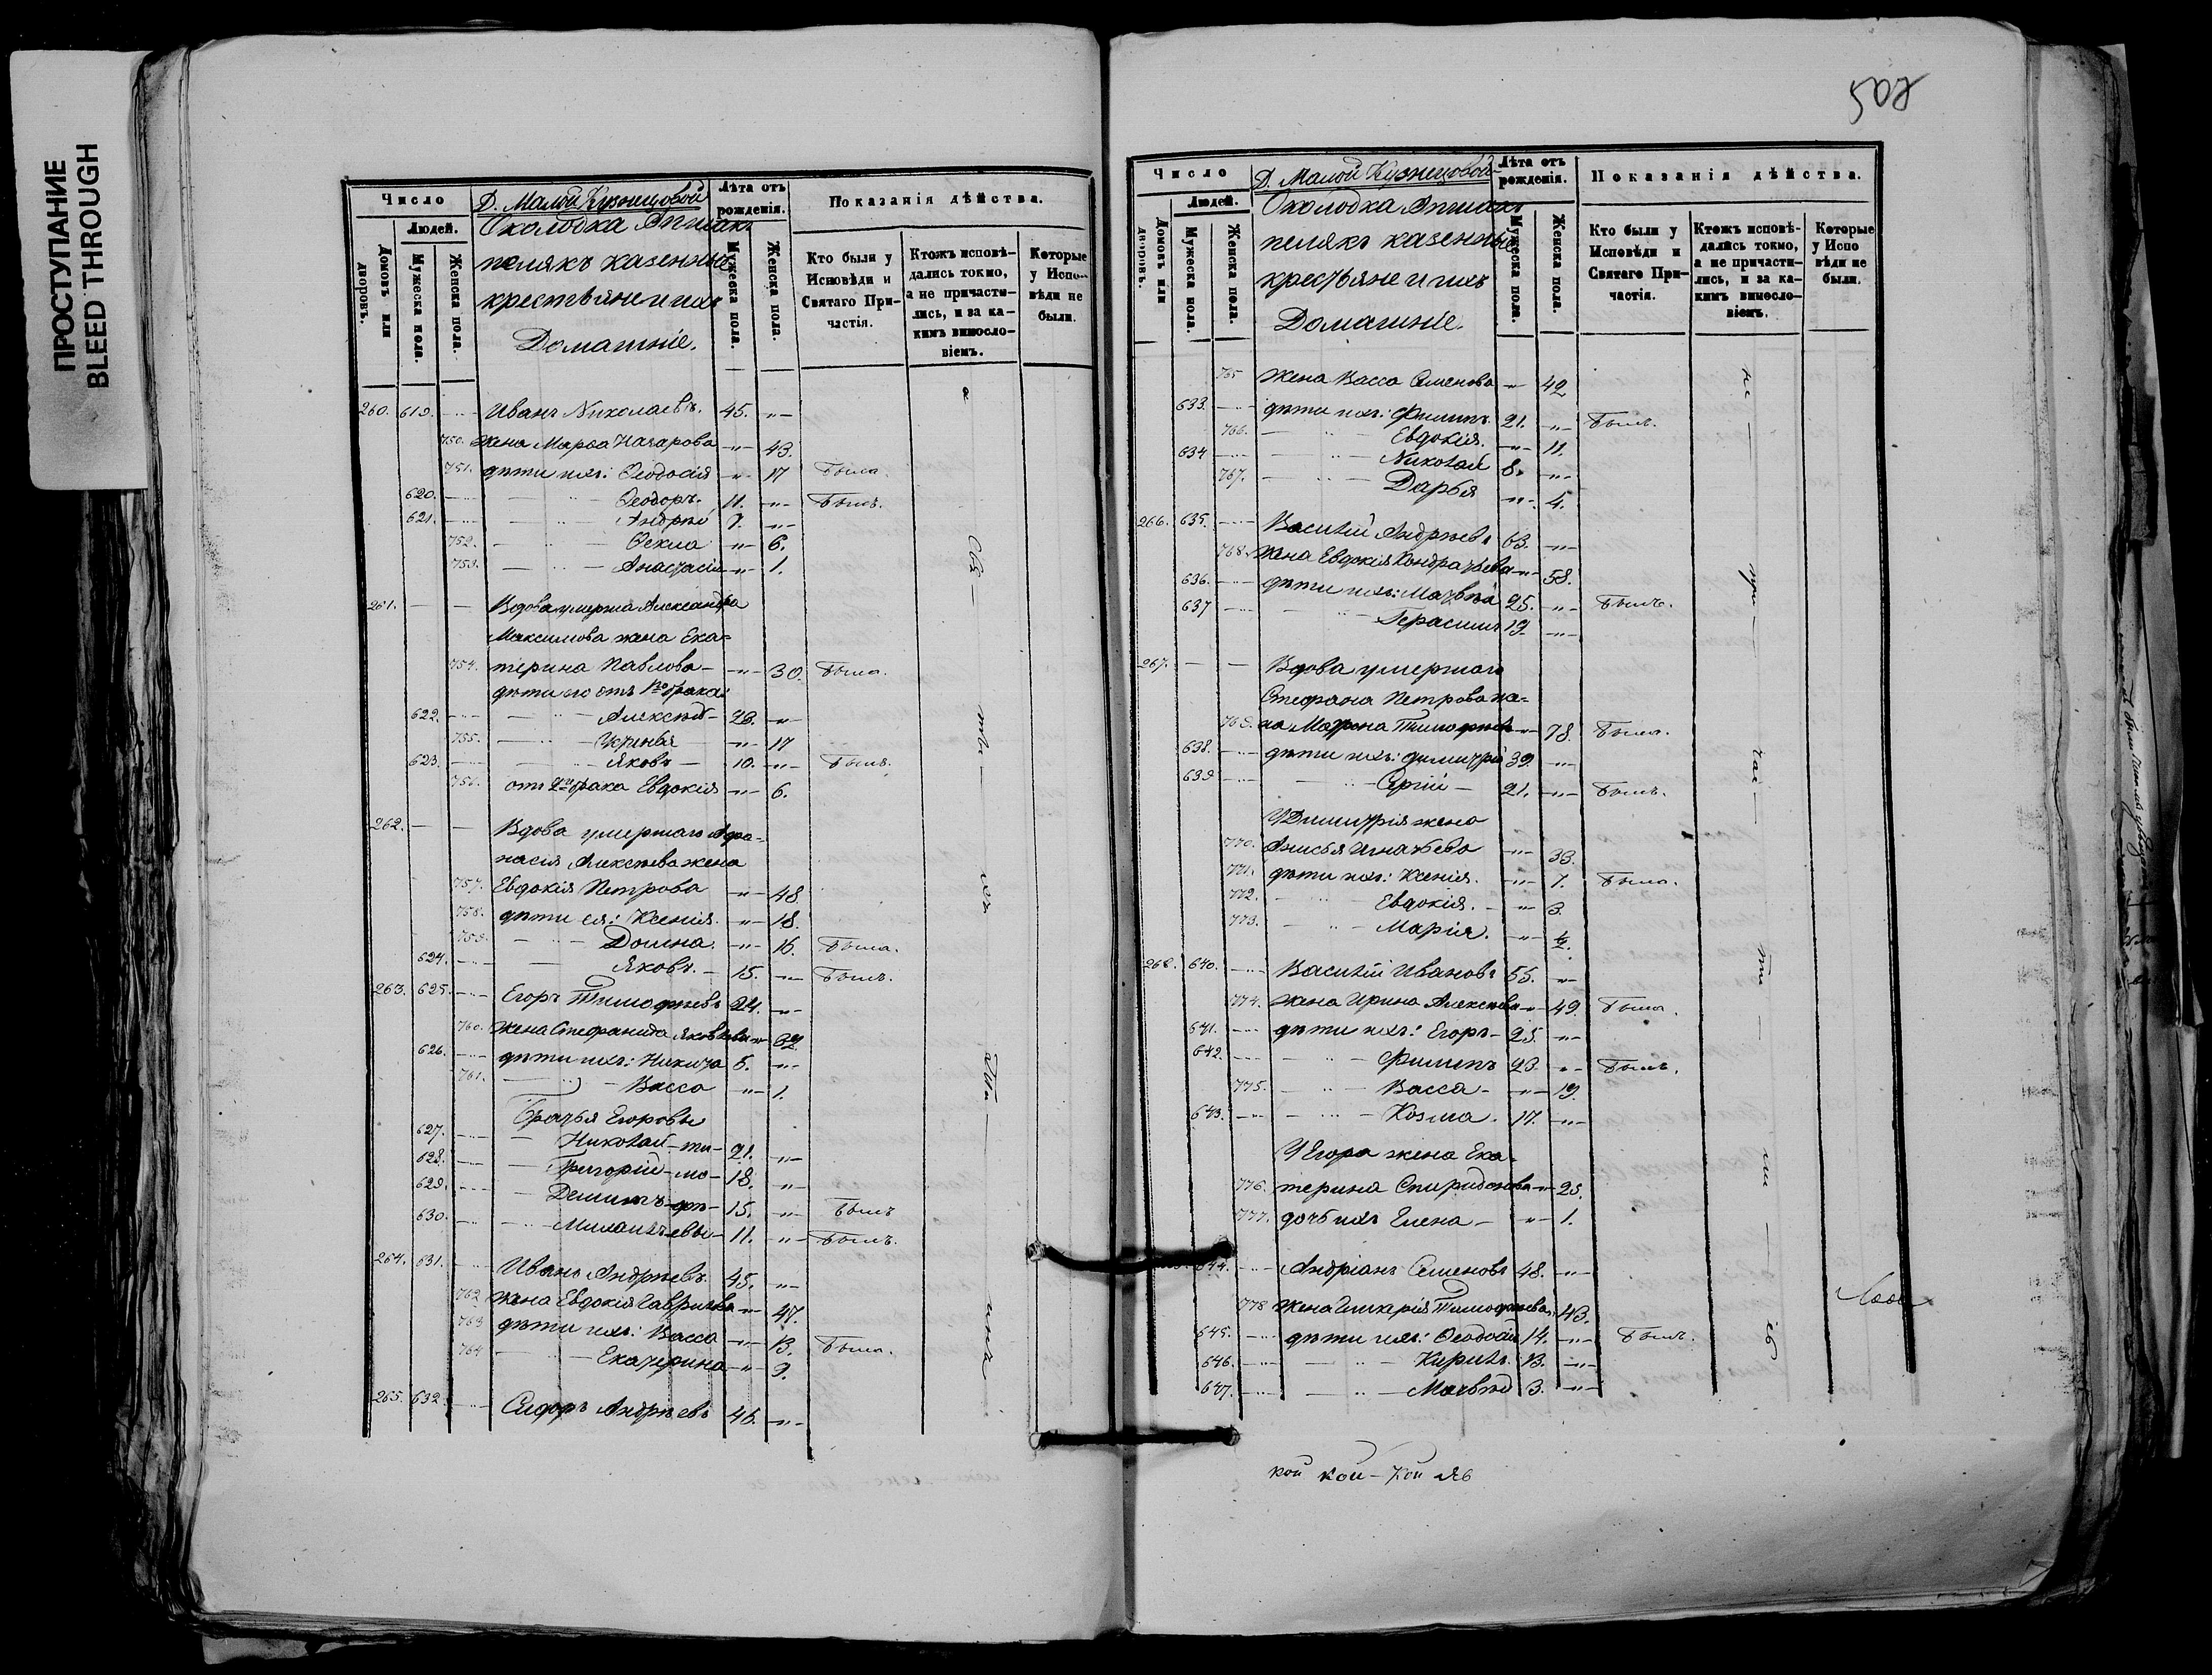 ПРОСТУПАНИЕ
BLEED THROUGH
Число
Людей.
Домовъ или дворовъ.
Мужеска пола.
Женска пола.
Д. Малой Кузнецовой
Околодка
казенные
крестьяне и ихъ
Домашніе.
Лѣта отъ рожденія.
Мужеска пола.
Женска пола.
Показанія дѣйства.
Кто были у Исповѣди и Святаго Причастія.
Ктожъ исповѣдались токмо, а не причастились, и за какимъ винословіемъ.
Которые у Исповѣди не были.
260. 619. Иванъ Николаевъ. 45.
750. жена Марѳа Назарова 43.
751. дѣти ихъ: Ѳеодосія 17 была.
620. Ѳеодоръ. 11. былъ.
621. Андрей 7.
752. Ѳекла 6.
753. Анастасія 1.
261. Вдова умерша Александра
Максимова жена Ека-
754. терина Павлова 30. была.
дѣти его отъ 1го брака:
622. Алексѣй 23.
755. 17
623. Яковъ 10. былъ.
756. отъ 2го брака Евдокія 6.
262. Вдова умершаго Афа-
насія Алексѣева жена
757. Евдокія Петрова 48.
758. дѣти ея: Ксенія. 18.
759. Домна. 16. была.
624. Яковъ. 15. былъ.
263. 625. Егоръ Тимофѣевъ 24.
760. жена Стефанида Яковлева 32
626. дѣти ихъ: Никита 5.
761. Васса 1.
Братья Егоровы
627. Николай ти- 21.
628. Григорій мо- 18.
629. фѣ- 15. былъ
630. Михаилъ евы 11. былъ.
264. 631. Иванъ Андреевъ 45.
762 жена Евдокія Гаврилова 47.
763 дѣти ихъ: Васса 13. была.
764 Екатерина 9.
265. 632. Сидоръ Андреевъ 46.
508
Число
Людей.
Домовъ или дворовъ.
Мужеска пола.
Женска пола.
Д. Малой Кузнецовой
Околодка
казенные
крестьяне и ихъ
Домашніе.
Лѣта отъ рожденія.
Мужеска пола.
Женска пола.
Показанія дѣйства.
Кто были у Исповѣди и Святаго Причастія.
Ктожъ исповѣдались токмо, а не причастились, и за какимъ винословіемъ.
Которые у Исповѣди не были.
765 жена Васса Семенова 42
633. дѣти ихъ: Филиппъ 21. былъ.
766. Евдокія. 11.
634 Николай 8.
767. Дарья 4.
266. 635. Василій Андреевъ 63.
768. жена Евдокія Кондратьева 58.
636. дѣти ихъ: Матвѣй 25. былъ.
637 Герасимъ 19.
267. Вдова умершаго
Стефана Петрова же-
769. на Матрона Тимофеева 78. была.
638. дѣти ихъ: Димитрій 39.
639 Сергій 21. былъ.
У Димитрія жена
770. Анисья Игнатьева 33.
771. дѣти ихъ: Ксенія. 7. была.
772. Евдокія. 3.
773. Марія. ½.
268. 640. Василій Ивановъ 55.
774. жена Ирина Алексѣева 49. была.
641. дѣти ихъ: Егоръ 25.
642. Филиппъ 23. былъ.
775. Васса 19.
643. Козма. 17.
У Егора жена Ека-
776. терина Спиридонова 25.
777. дочь ихъ Елена 1.
644. Андріанъ Семеновъ 48.
778 жена Гликерія Тимофеева 43.
645. дѣти ихъ: Ѳеодосій 14. былъ.
646. Кирилъ 13.
647. Матвѣй 3.